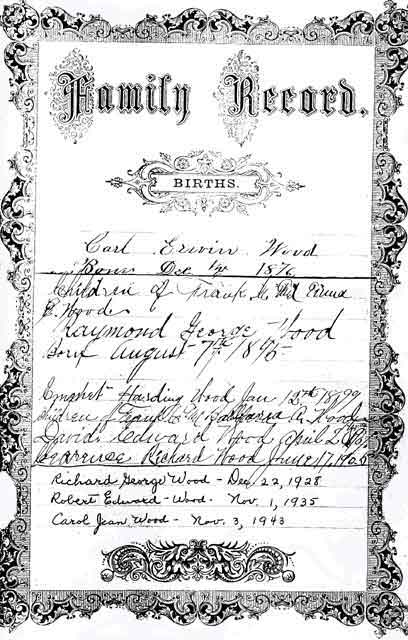 Family Record.
BIRTHS.
Carl Erwin Wood
Born Dec 1876
Children of Frank
Wood
Raymond George Wood
Born August 7th 1895
Harding Wood Jan 12th 1899
Children of Frank Barbara A Wood
David Edward Wood April 2
Clarence Richard Wood June 17, 1905
Richard George Wood - Dec 22, 1928
Robert Edward Wood - Nov. 1, 1935
Carol Jean Wood - Nov. 3, 1943